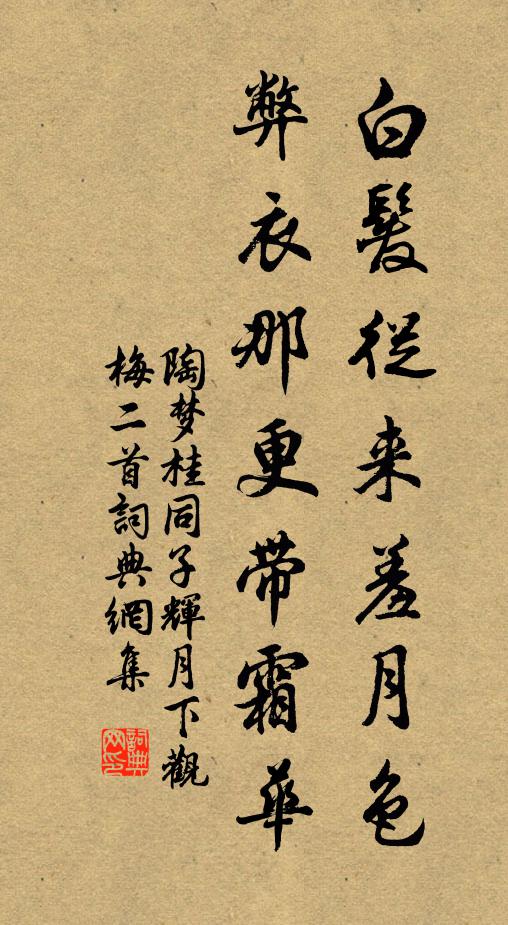 白髮從来羞月色
弊衣那更帶霜華
陶梦桂同子輝月下觀
梅二首詞典網集
詞典网印